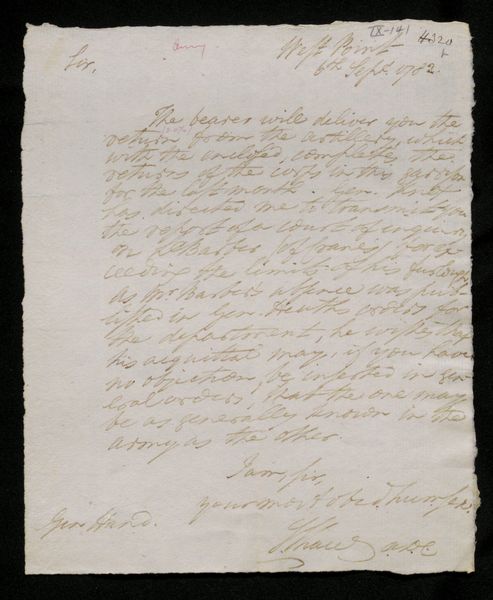 IX-141
#320
Army
West Point
6th Sept. 1782.
Sir,
The bearer will deliver you the
return from the artillery, which
with the inclosed, completes the
returns of the corps in this garrison
for the last month. Gen. Knox
has directed me to transmit you
the report of a court of inquiry
on Lt Barber for ex-
ceeding the limits of his furlough
as Mr Barber's absence was pub-
lished in Gen. Heath's orders for
the department, he wishes that
his acquittal may, if you have
no objection, be inserted in gen-
eral orders, that the one may
be as generally known in the
army as the other.
I am, sir,
your most obed. hum. ser.
Gen. Hand.
S. Shaw a.d.c.